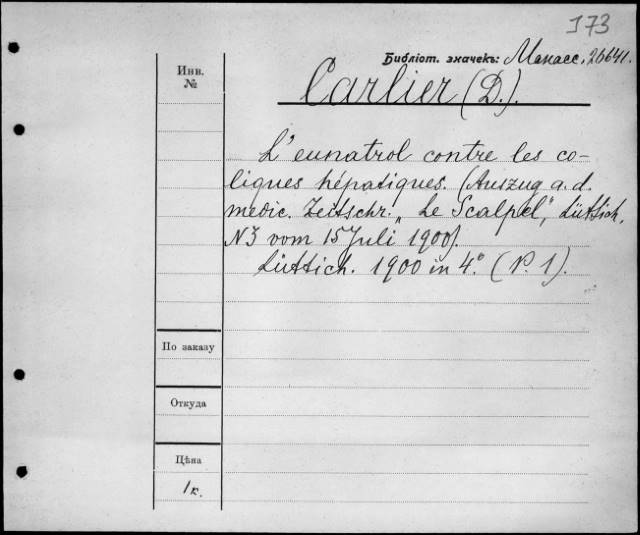 173
Библіот. значекъ: Манасс. 26641.
Инв.
№
Carlier (D.).
L'eunatrol contre les co-
liques hépatiques. (Auszug a. d.
medic. Zeitschr. „Le Scalpel", Lüttich,
N3 vom 15 Juli 1900).
Lüttich. 1900 in 4.° (P. 1).
По заказу
Откуда
Цѣна
1к.